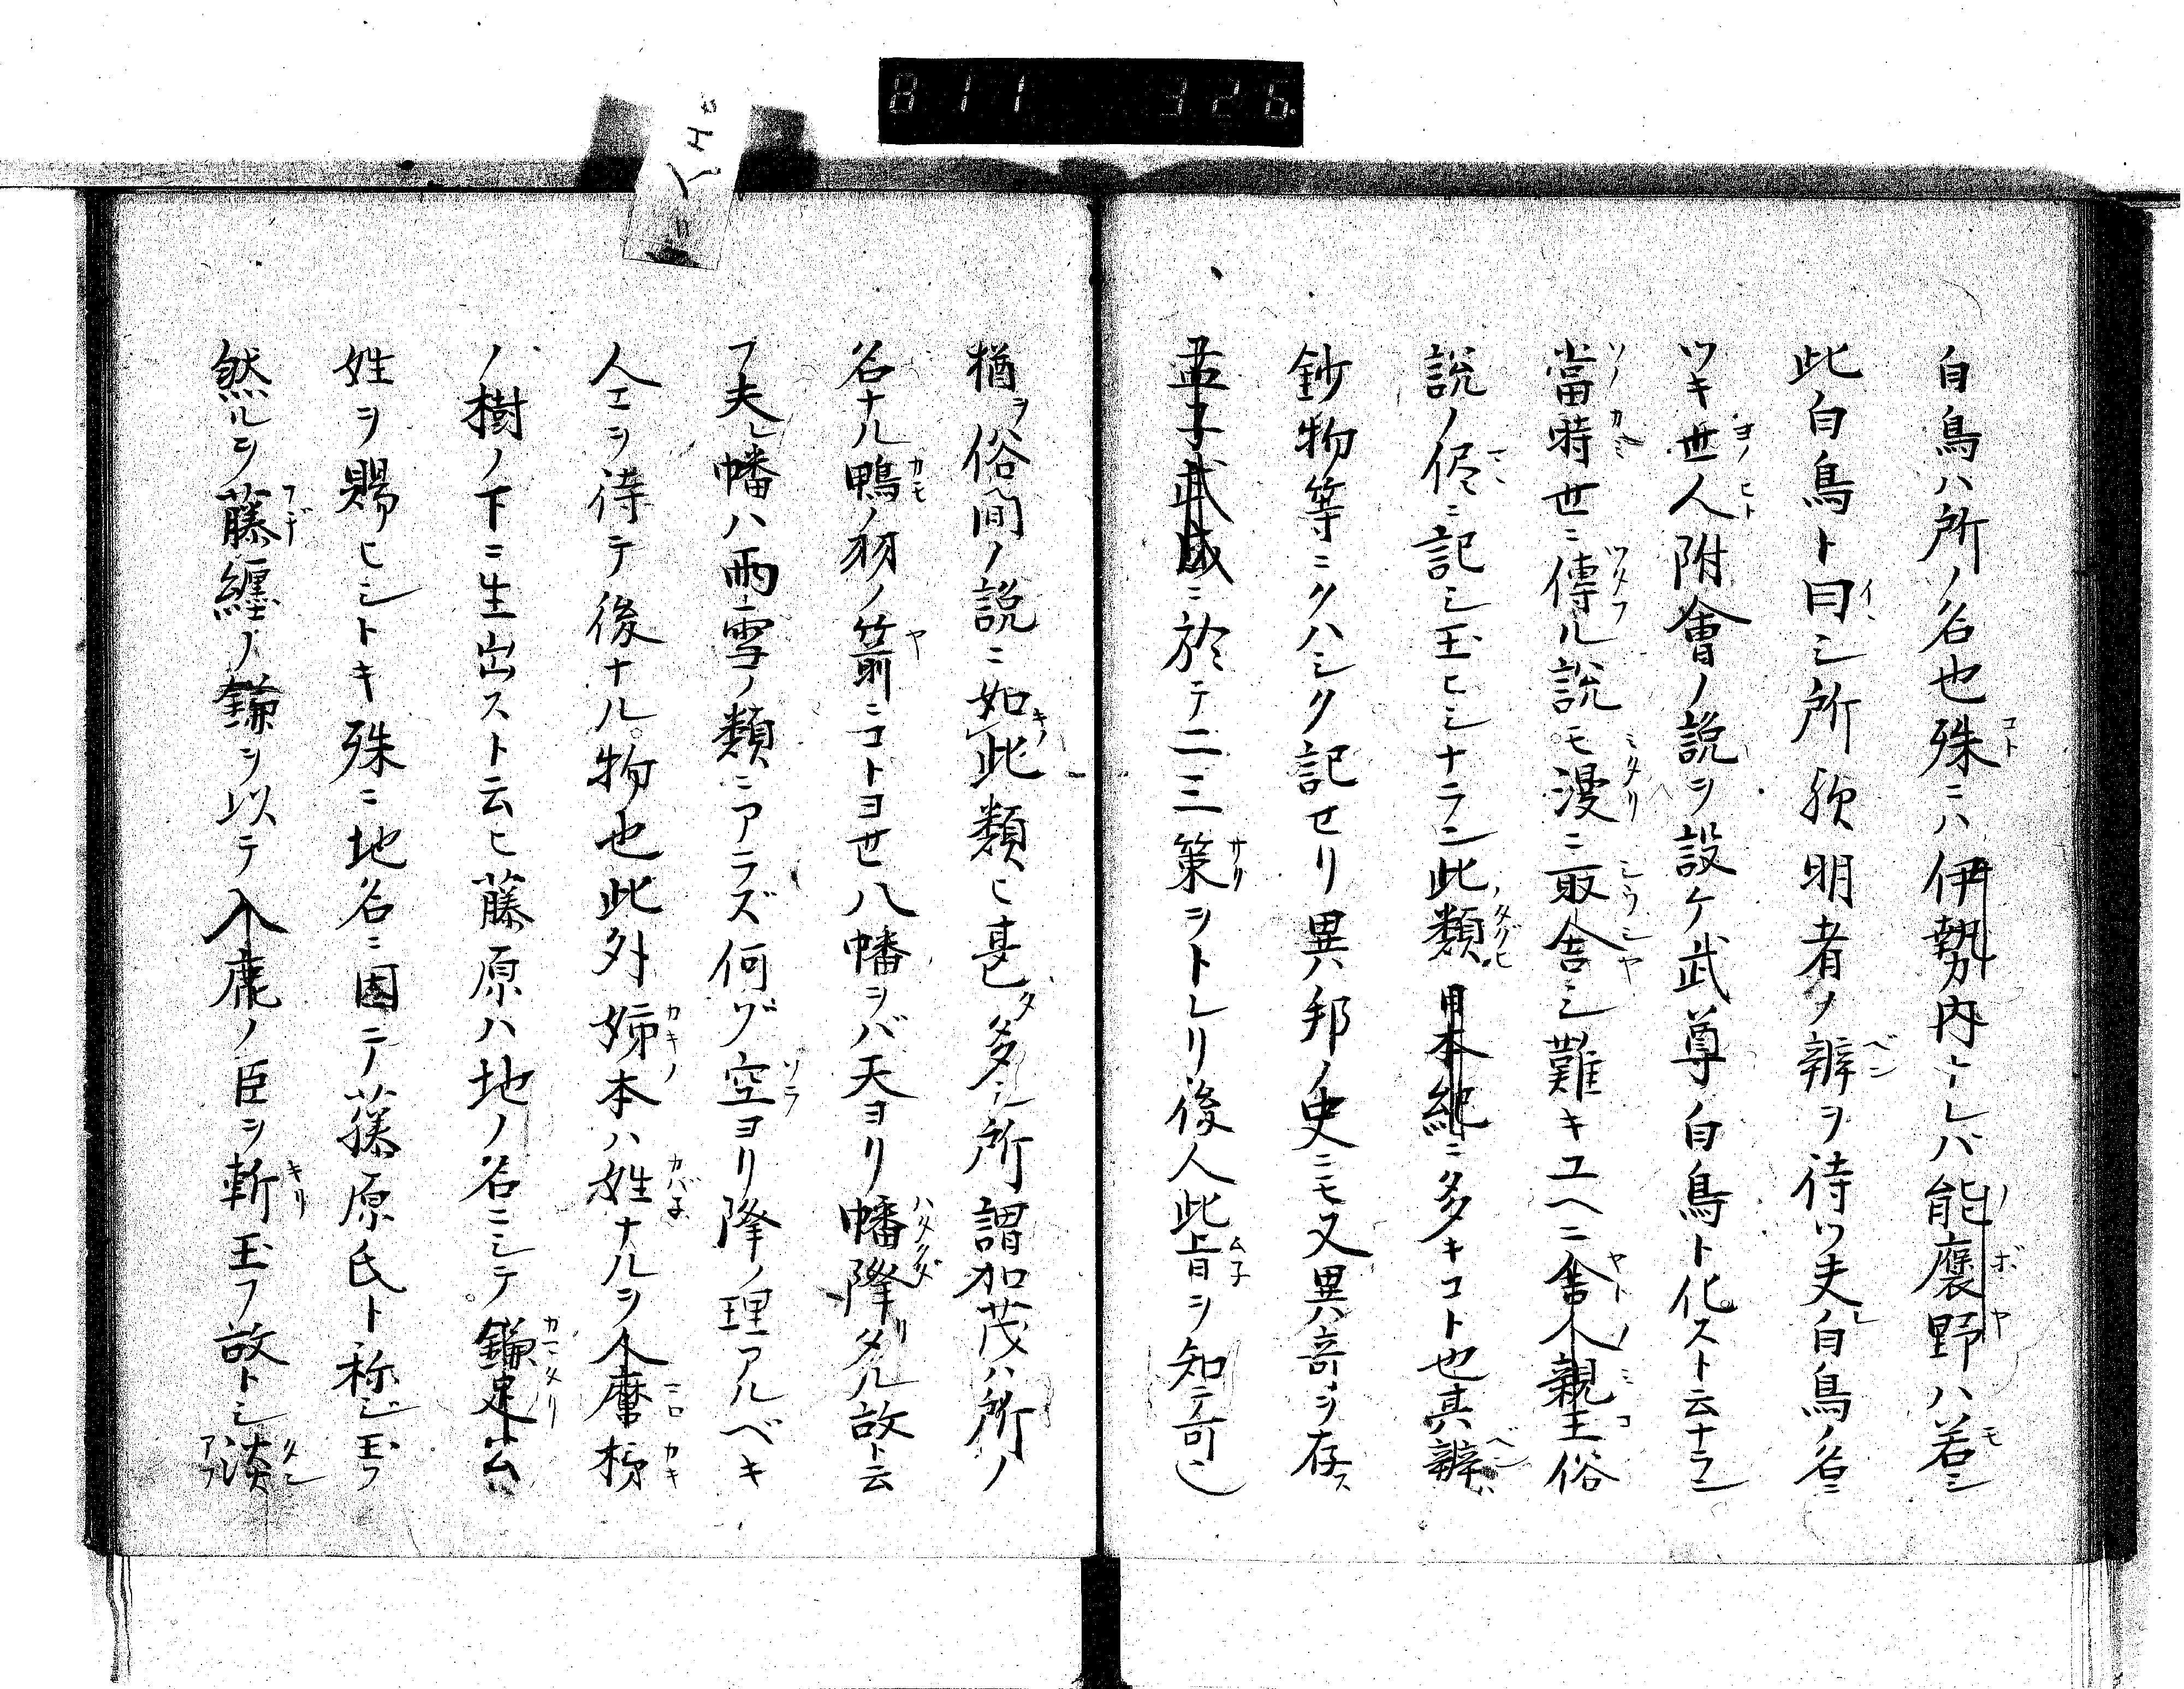 811 326
白鳥ハ所ノ名也殊ニハ伊勢内ナレバ能褒野ハ若シ
此白鳥ト曰シ所歟明者ノ辨ヲ待ツ夫白鳥ノ名ニ
ツキ世人附會ノ説ヲ設ケ武尊白鳥ト化スト云ナラン
當時世ニ傳ル説モ漫ニ取舎シ難キユヘニ舎人親王俗
説ノ侭ニ記シ玉ヒシナラン此類日本紀ニ多キコト也其辨
鈔物等ニクハシク記セリ異邦ノ史ニモ又異竒ヲ存ス
孟子武成ニ於テ二三策ヲトレリ後人此旨ヲ知テ可也
猶ヲ俗間ノ説ニ如此類ヒ甚多シ所謂加茂ハ所ノ
名ナル鴨ノ羽ノ箭ニコトヨセ八幡ヲバ天ヨリ幡降タル故ト云
フ夫レ幡ハ雨雪ノ類ニアラズ何ゾ空ヨリ降ノ理アルベキ
人エヲ待テ後ナル物也此外姉本ハ姓ナルヲ人麿柿
ノ樹ノ下ニ生出スト云ヒ藤原ハ地ノ名ニシテ鎌足公
姓ヲ賜ヒシトキ殊ニ地名ニ因テ藤原氏ト称シ玉フ
然ルヲ藤纏ノ鎌ヲ以テ入鹿ノ臣ヲ斬玉フ故トシ淡